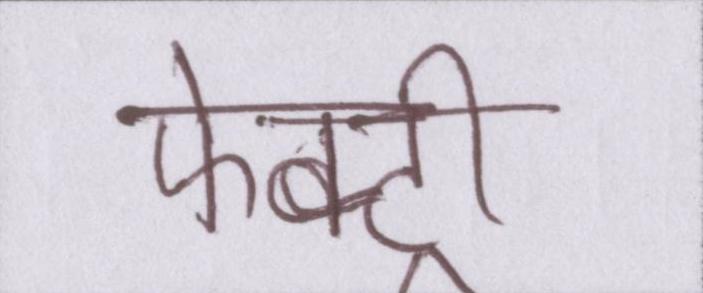 फेक्ट्री